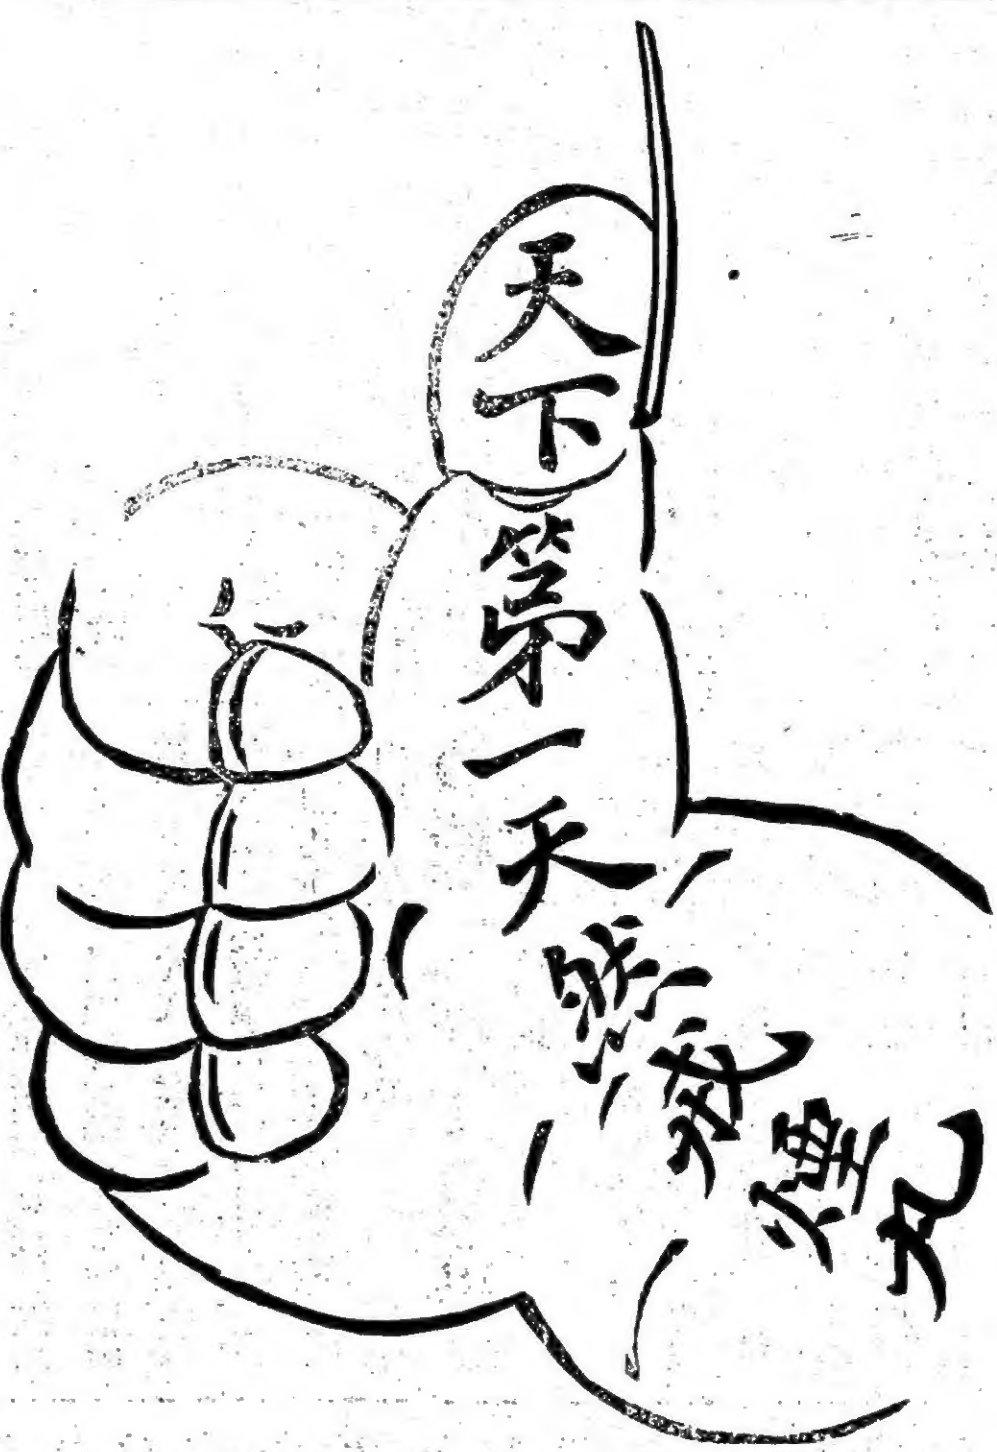 天下第一天然戒煙丸